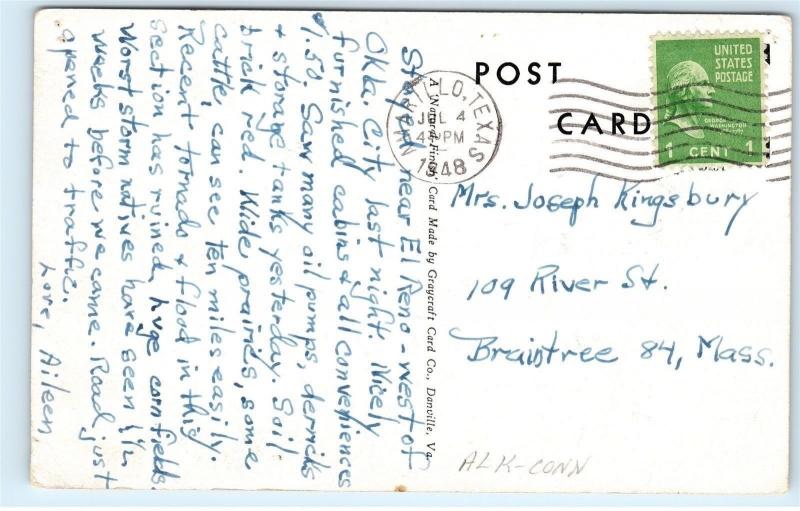 Stayed near El Reno - west of
Okla. City last night. Nicely
furnished cabins & all conveniences
1.50. Saw many oil pumps, derricks
& storage tanks yesterday. Soil
brick red. Wide prairies, some
cattle, can see ten miles easily.
Recent tornado & flood in this
section has ruined huge cornfields.
Worst storm natives have seen 1½
weeks before we came. Road just
opened to traffic.
Love, Aileen
A "Natural-Finish" Card Made by Graycraft Card Co., Danville, Va.
POST
CARD
AMARILLO, TEXAS
JUL 4
4 PM
1948
UNITED
STATES
POSTAGE
GEORGE
WASHINGTON
1 CENT 1
Mrs. Joseph Kingsbury
109 River St.
Braintree 84, Mass.
ALK-CONN